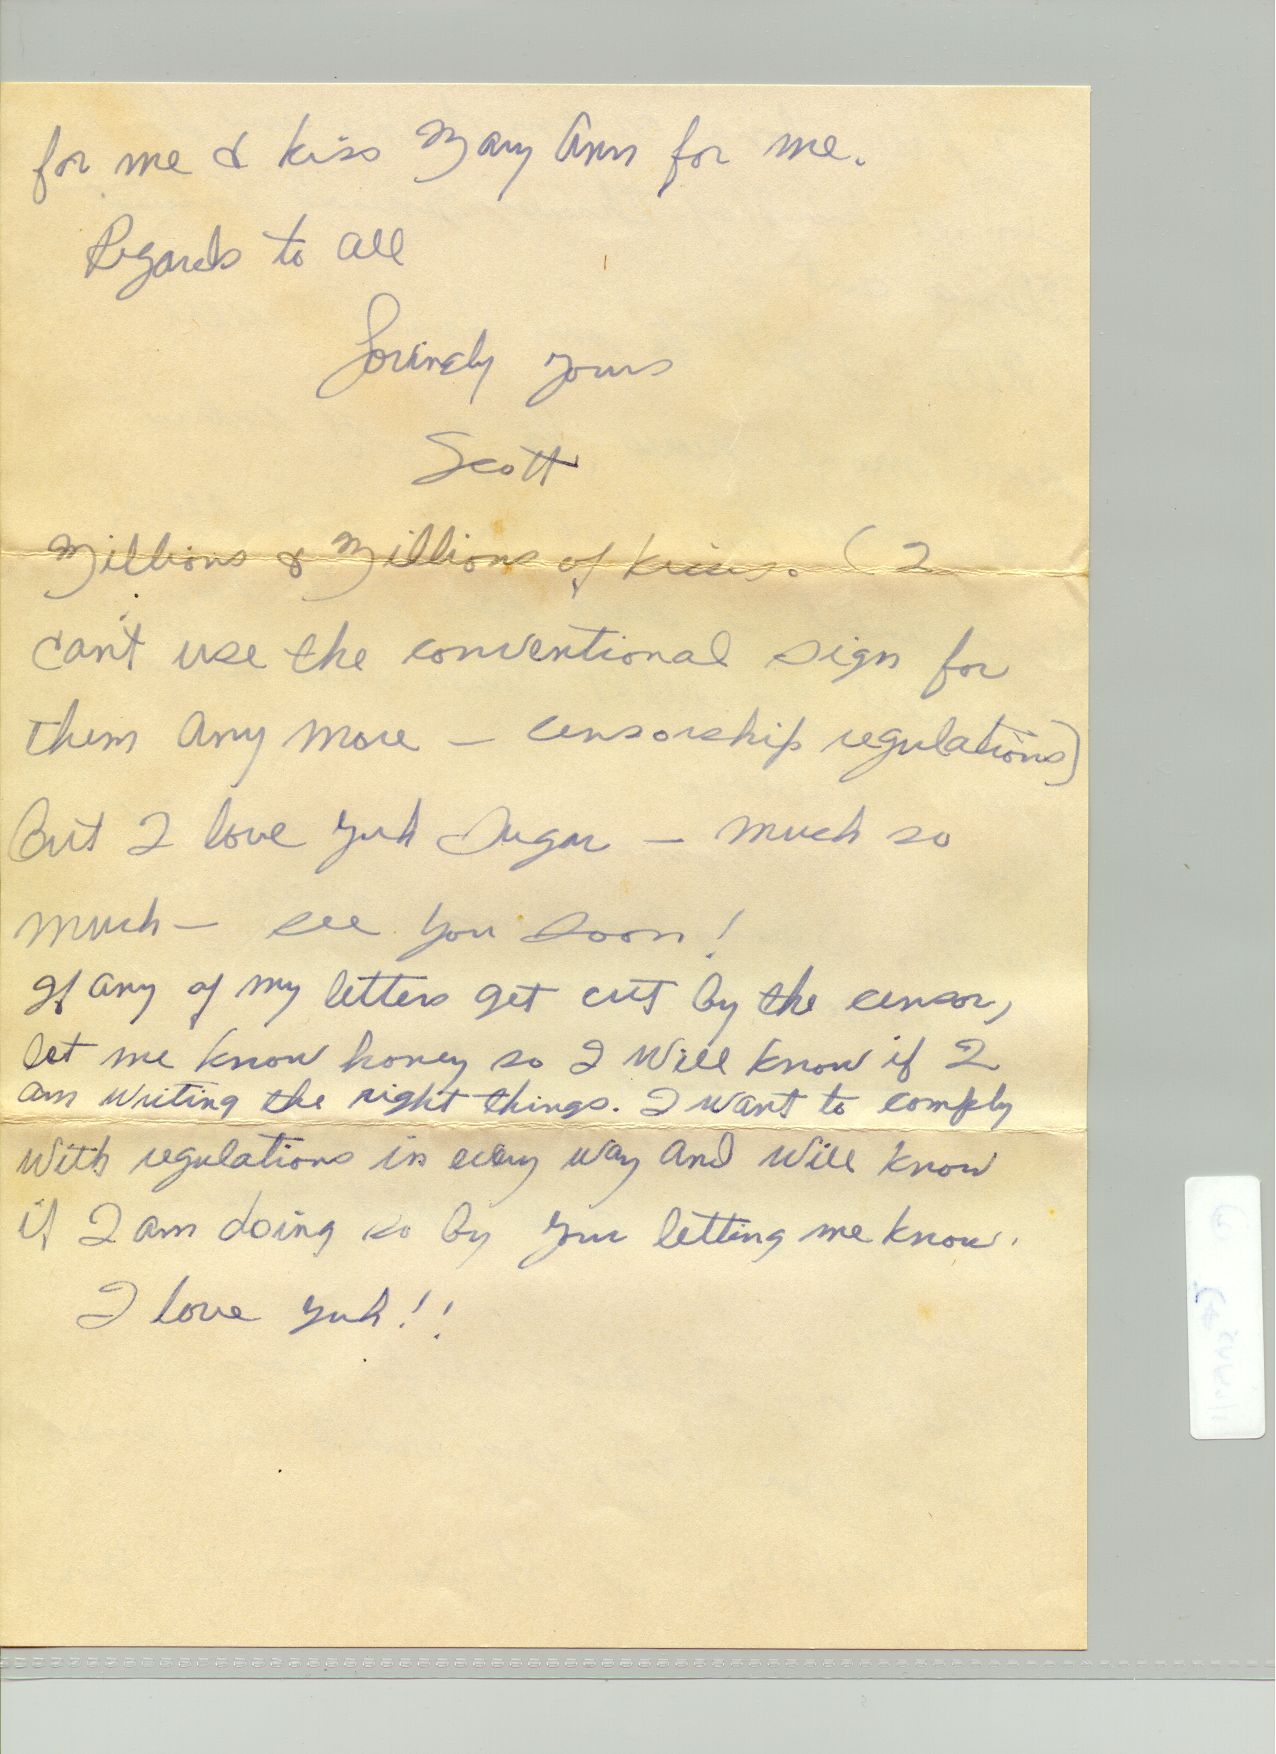 for me & kiss Mary Ann for me.
Regards to all
Lovingly yours
Scott
Millions & Millions of kisses. (I
can't use the conventional sign for
them any more - censorship regulations)
But I love yuh Sugar - much so
much - see you soon!
If any of my letters get cut by the censor,
let me know honey so I will know if I
am writing the right things. I want to comply
with regulations in every way and will know
if I am doing so by your letting me know.
I love yuh!!